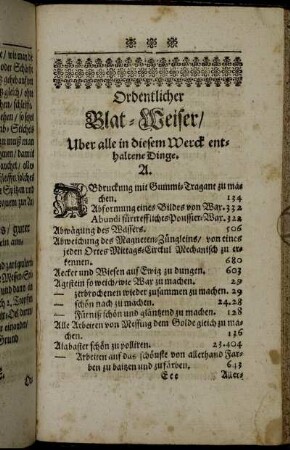 Ordentlicher
Blat-Weiser/
Uber alle in diesem Werck ent-
haltene Dinge.
A.
ABdruckung mit Gummi-Tragant zu ma-
chen. 134
Abformung eines Bildes von War. 332
Abundi fürtreffliches Poussier-War. 328
Abwägung des Wassers. 506
Abweichung des Magneten-Züngleins, von eines
jeden Ortes Mittags-Circkul Mechanisch zu er-
kennen. 680
Aecker und Wiesen auf Ewig zu dungen. 603
Agtstein so weich, wie War zu machen. 29
— zerbrochenen wieder zusammen zu machen. 29
— schön nach zu machen. 24.28
— Fürniß schön und glänzend zu machen. 128
Alle Arbeiten von Messing dem Golde gleich zu ma-
chen. 136
Alabaster schön zu polliren. 23.404
— Arbeiten auf das schönste von allerhand Far-
ben zu baitzen und zu färben. 643
Eee Aller-